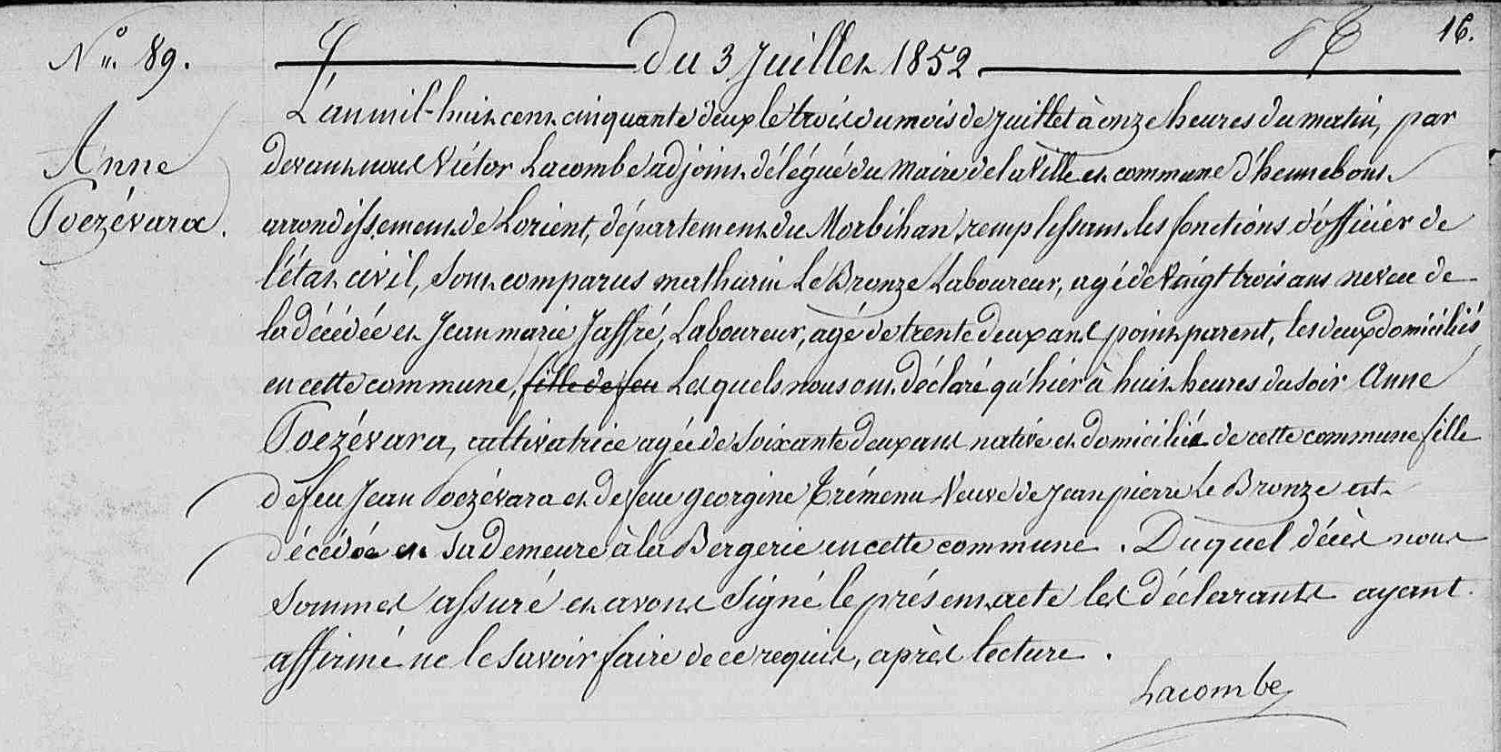 16.
N° 89. du 3 Juillet 1852
Anne
Poezévara.
L'an mil-huit cent cinquante deux le trois du mois de juillet à onze heures du matin, par
devant nous Victor Lacombe adjoint délégué du Maire de la Ville et commune d'hennebont
arrondissement de Lorient, département du Morbihan, remplissant les fonctions d'officier de
l'état civil, sont comparus mathurin Le Bronze Laboureur, agé de vingt trois ans neveu de
la décédée et Jean marie Jaffré, Laboureur, agé de trente deux ans point parent, les deux domiciliés
en cette commune, fille de feu Lesquels nous ont déclaré qu'hier à huit heures du soir Anne
Poezévara, cultivatrice agée de soixante deux ans native et domiciliée de cette commune fille
de feu Jean Poezévara et de feue georgine Trémenu Veuve de Jean pierre Le Bronze est
décédée en sa demeure à la Bergerie en cette commune. Duquel décès nous
sommes assuré et avons signé le présent acte les déclarants ayant
affirmé ne le savoir faire de ce requis, après lecture.
Lacombe